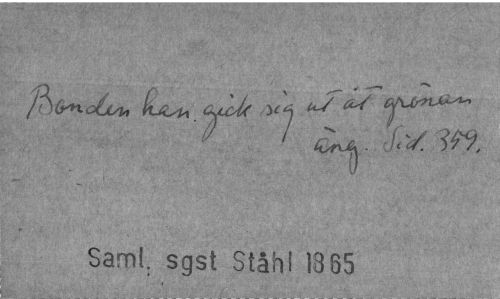 Bonden han gick sig ut åt grönan
äng. Sid. 359.
Saml. sgst Ståhl 1865